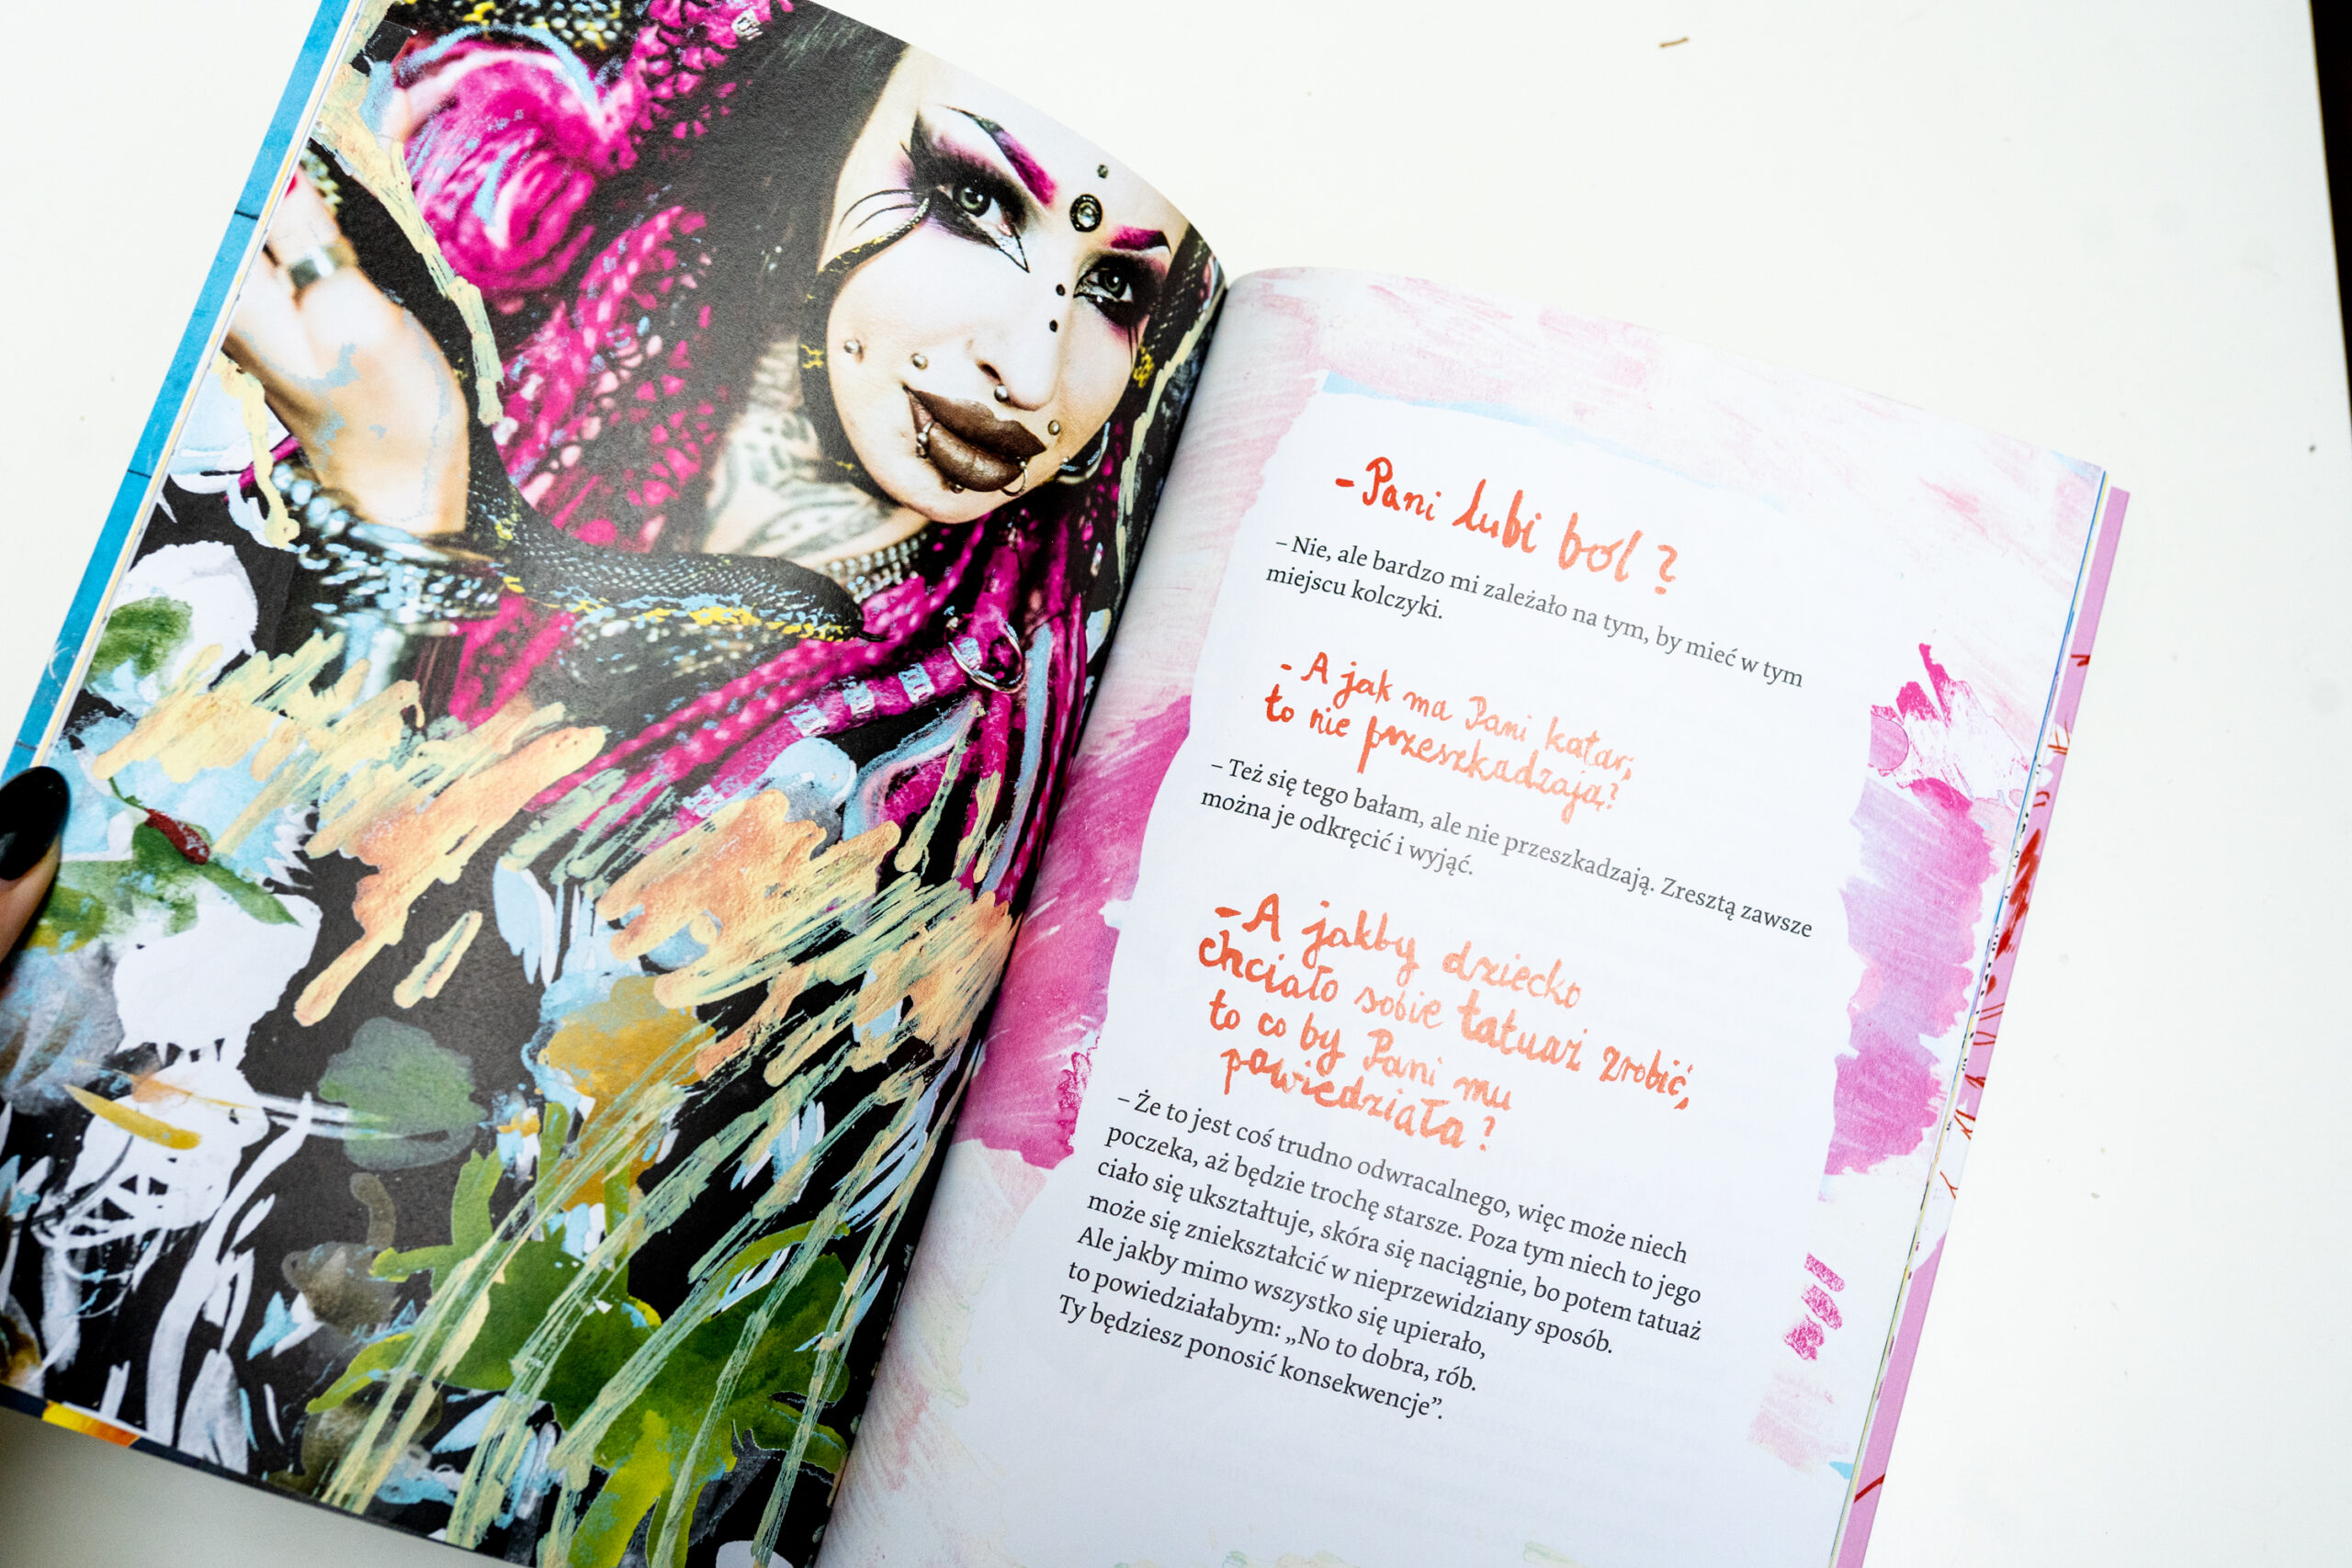 - Pani lubi ból?
– Nie, ale bardzo mi zależało na tym, by mieć w tym
miejscu kolczyki.
- A jak ma Pani katar,
to nie przeszkadzają?
– Też się tego bałam, ale nie przeszkadzają. Zresztą zawsze
można je odkręcić i wyjąć.
- A jakby dziecko
chciało sobie tatuaż zrobić,
to co by Pani mu
powiedziała?
– Że to jest coś trudno odwracalnego, więc może niech
poczeka, aż będzie trochę starsze. Poza tym niech to jego
ciało się ukształtuje, skóra się naciągnie, bo potem tatuaż
może się zniekształcić w nieprzewidziany sposób.
Ale jakby mimo wszystko się upierało,
to powiedziałabym: „No to dobra, rób.
Ty będziesz ponosić konsekwencje”.